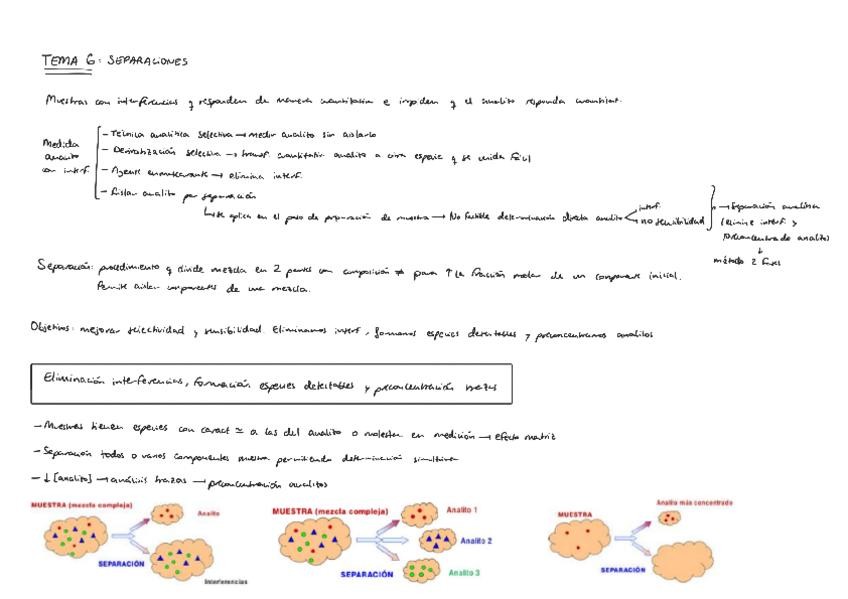 TEMA 6: SEPARACIONES
Muestras con interferencias q responden de manera cuantitativa e impiden q el analito responda cuantitat.
Medida
analito
con interf.
- Técnica analítica selectiva → medir analito sin aislarlo
- Derivatización selectiva → transf. cuantitativa analito a otra especie q se mida fácil
- Agente enmascarante → elimina interf.
- Aislar analito por separación
↳ se aplica en el paso de preparación de muestra → No factible determinación directa analito
interf.
no sensibilidad
→ Separación analítica
(elimine interf y
preconcentra de analito)
↓
método 2 fases
Separación: procedimiento q divide mezcla en 2 partes con composición ≠ para ↑ la fracción molar de un componente inicial.
Permite aislar componentes de una mezcla.
Objetivos: mejorar selectividad y sensibilidad. Eliminamos interf, formamos especies detectables y preconcentramos analitos
Eliminación interferencias, formación especies detectables y preconcentración trazas
- Muestras tienen especies con caract ≃ a las del analito o molestan en medición → efecto matriz
- Separación todos o varios componentes muestra permitiendo determinación simultánea
- ↓ [analito] → análisis trazas → preconcentración analitos
MUESTRA (mezcla compleja)
Analito
SEPARACIÓN
Interferencias
MUESTRA (mezcla compleja)
Analito 1
Analito 2
SEPARACIÓN
Analito 3
MUESTRA
Analito más concentrado
SEPARACIÓN